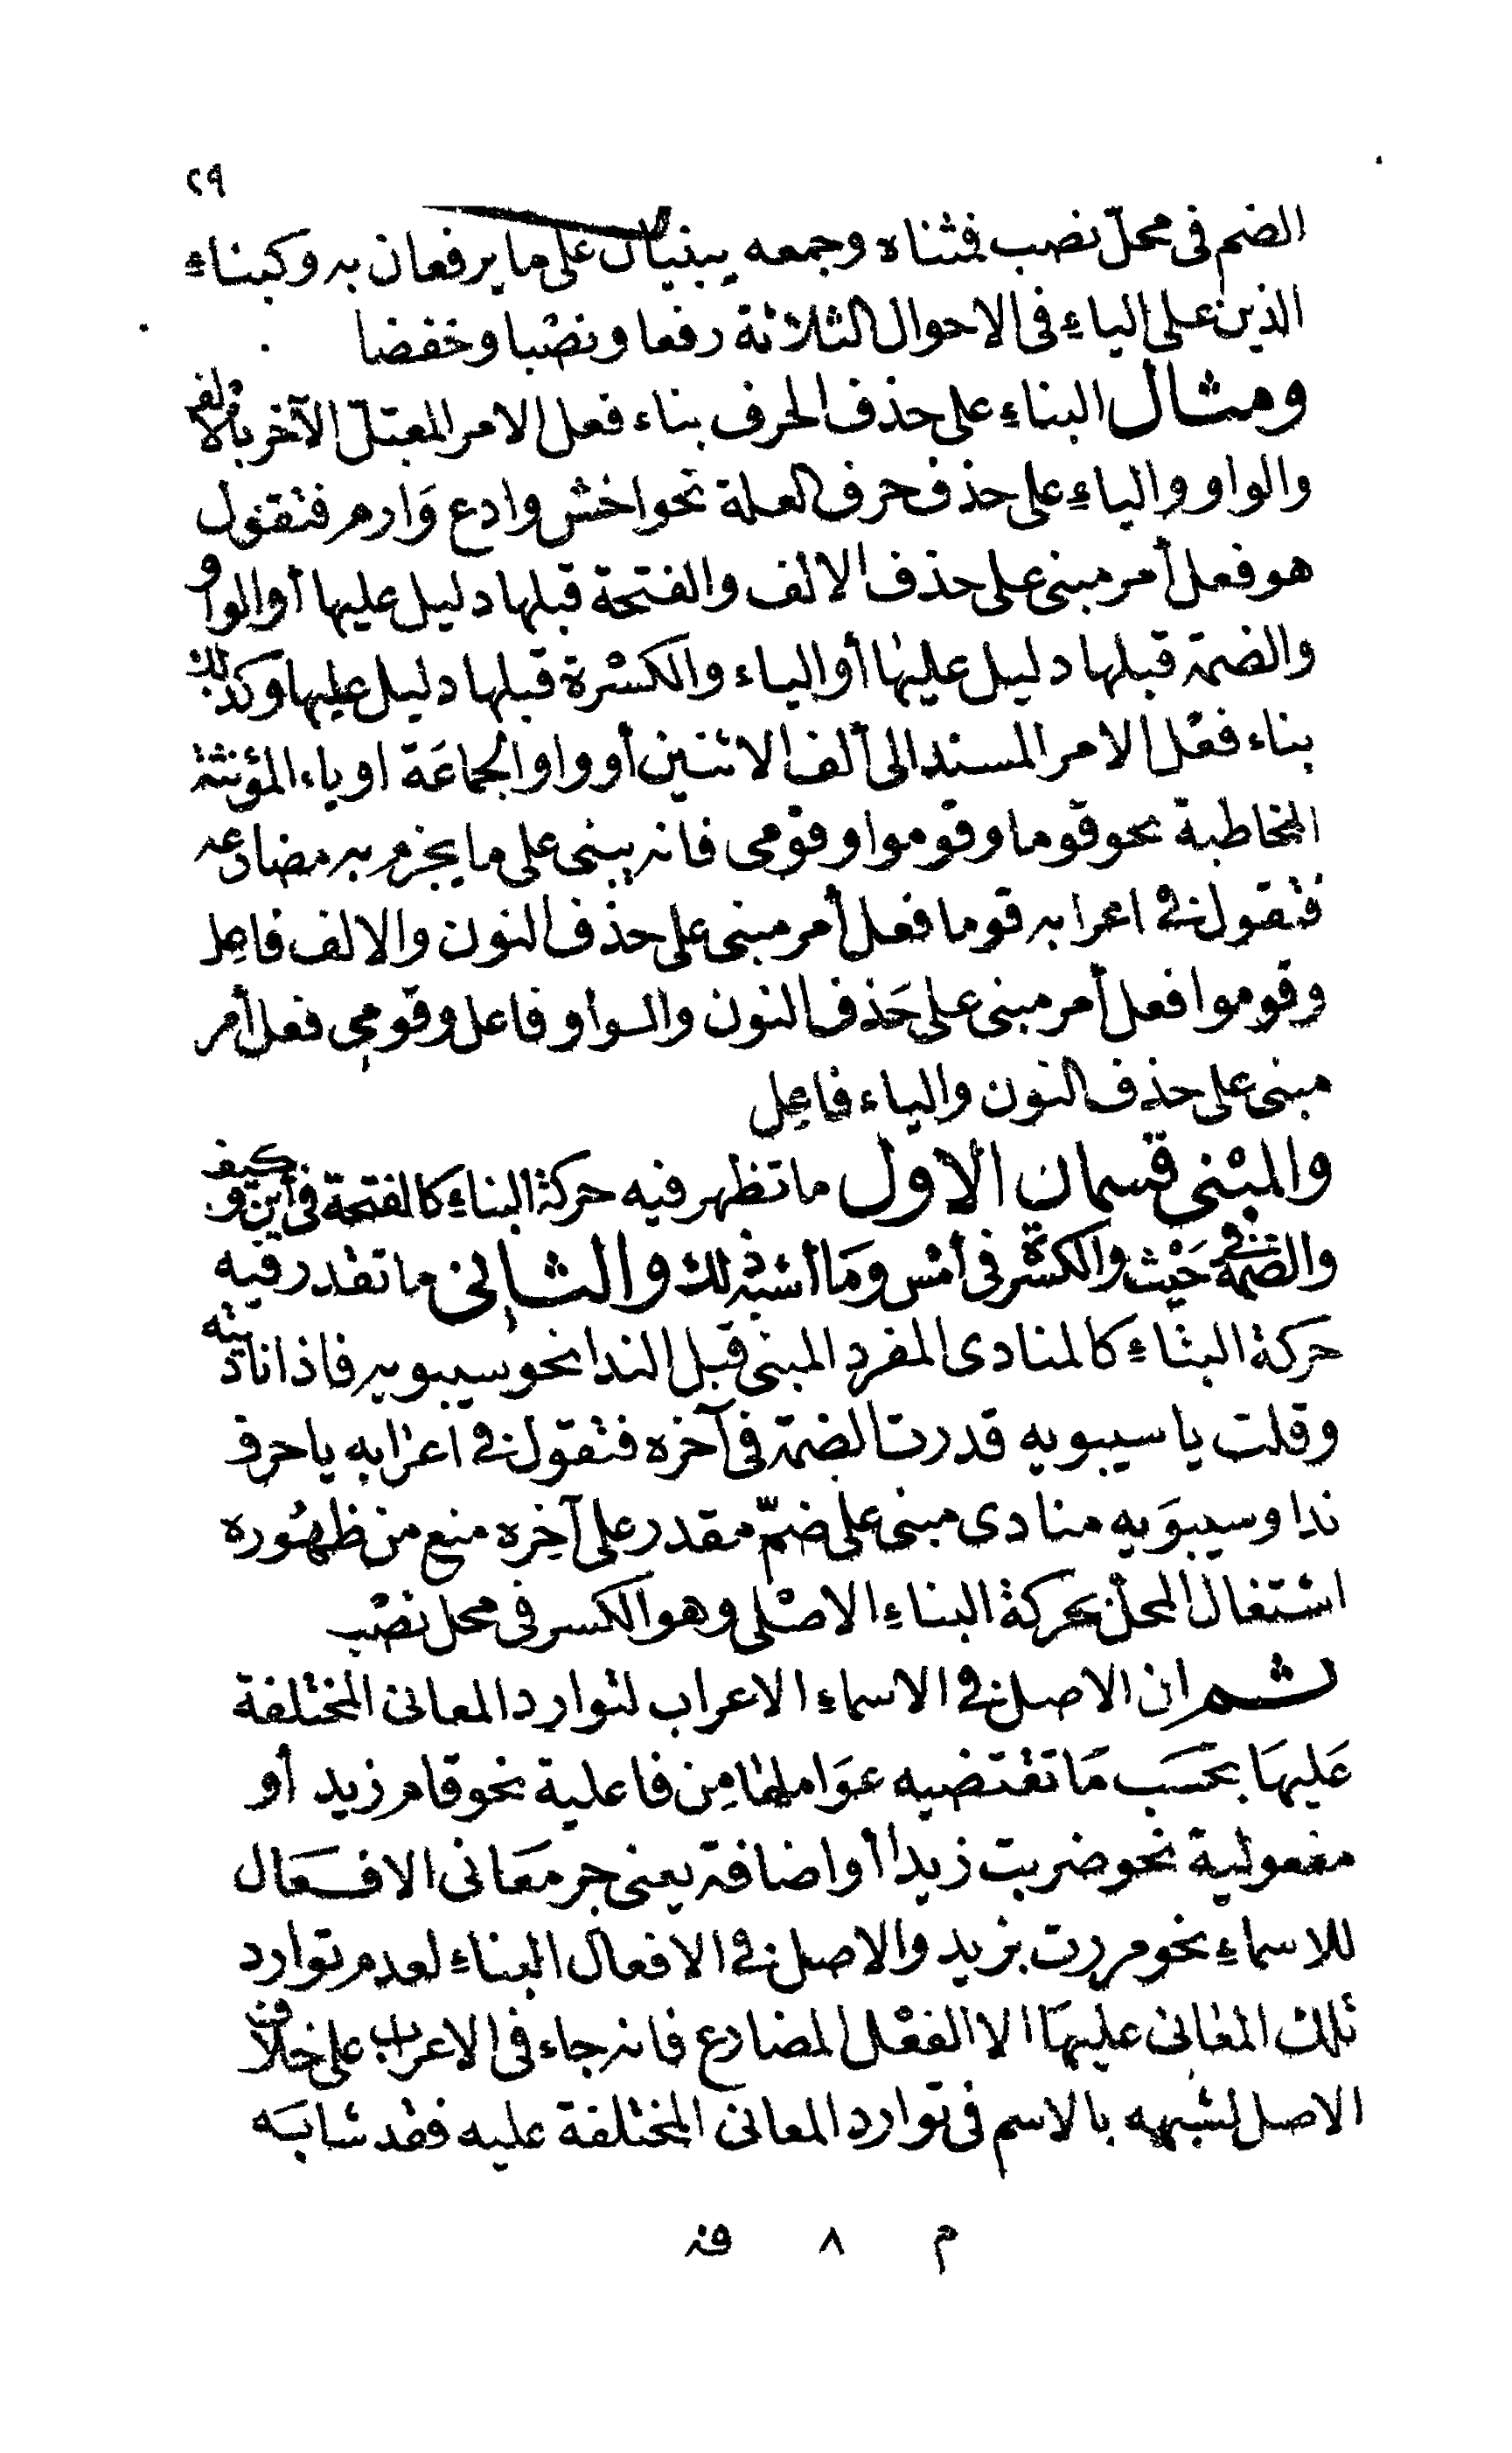 ٢٩
الضم فى محل نصب فمثناه وجمعه يبنيان على ما يرفعان به وكبناء
الذين على الياء فى الاحوال الثلاثة رفعا ونصْبا وخفضا
ومثال البناء على حذف الحرف بناء فعل الامر المعتلّ الآخر بالالف
والواو والياء على حذف حرف العلة نحو اخش وادع وَارم فتقول
هو فعل أمر مبنى على حذف الالف والفتحة قبلها دليل عليها أو الواو
والضمة قبلها دليل عليها أو الياء والكسْرة قبلها دليل عليها وكذلك
بناء فعْل الامر المسند الى ألف الاثنين أو واو الجماعَة او ياء المؤنثة
المخاطبة نحو قوما وقوموا وقومى فانه يبنى على ما يجزم به مضارعه
فتقول فى اعرابه قوما فعل أمر مبنى على حذف النون والالف فاعِل
وقوموا فعل أمر مبنى على حَذف النون والواو فاعل وقومى فعل أمر
مبنى على حذف النون والياء فاعِل
والمبْنى قسمان الاول ما تظهر فيه حركة البناء كالفتحة فى أين وكيف
والضمة فى حَيْث والكسْرة فى أمْس وَما أشبه ذلك والثانى ما تقدر فيه
حركة البناء كالمنادى المفرد المبنى قبل الندا نحو سيبويه فاذا ناديته
وقلت يا سيبويه قدرت الضمة فى آخره فتقول فى اعرابه يا حرف
ندا وسيبوَيه منادى مبنى على ضمّ مقدر على آخِره منع من ظهُوره
اشتغال المحل بحركة البناء الاصْلى وهو الكسر فى محل نصْب
ثم ان الاصل فى الاسماء الاعراب لتوارد المعانى المختلفة
عَليهَا بحسَب مَا تقتضيه عوَاملها مِن فاعلية نحو قام زيد أو
مفعولية نحو ضربت زيدا أو اضافة يعنى جر معَانى الافعَال
للاسماء نحو مررت بزيد والاصل فى الافعال البناء لعدم توارد
تلك المعانى عليهَا الا الفعْل المضارع فانه جاء فى الاعراب على خلاف
الاصل لشبهه بالاسم فى توارد المعانى المختلفة عليه فقد شابَه
م ٨ فن